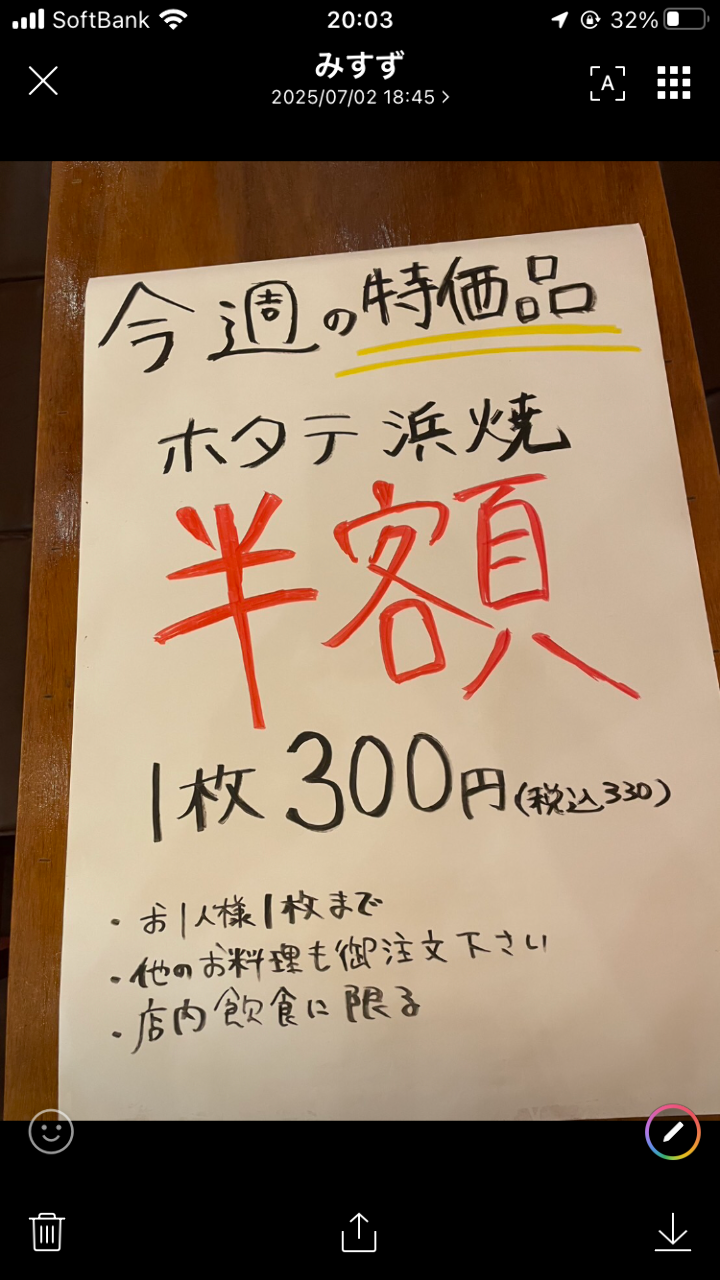 SoftBank 20:03 32%
みすず
2025/07/02 18:45
A
今週の特価品
ホタテ浜焼
半額
1枚300円(税込330)
・お1人様1枚まで
・他のお料理も御注文下さい
・店内飲食に限る